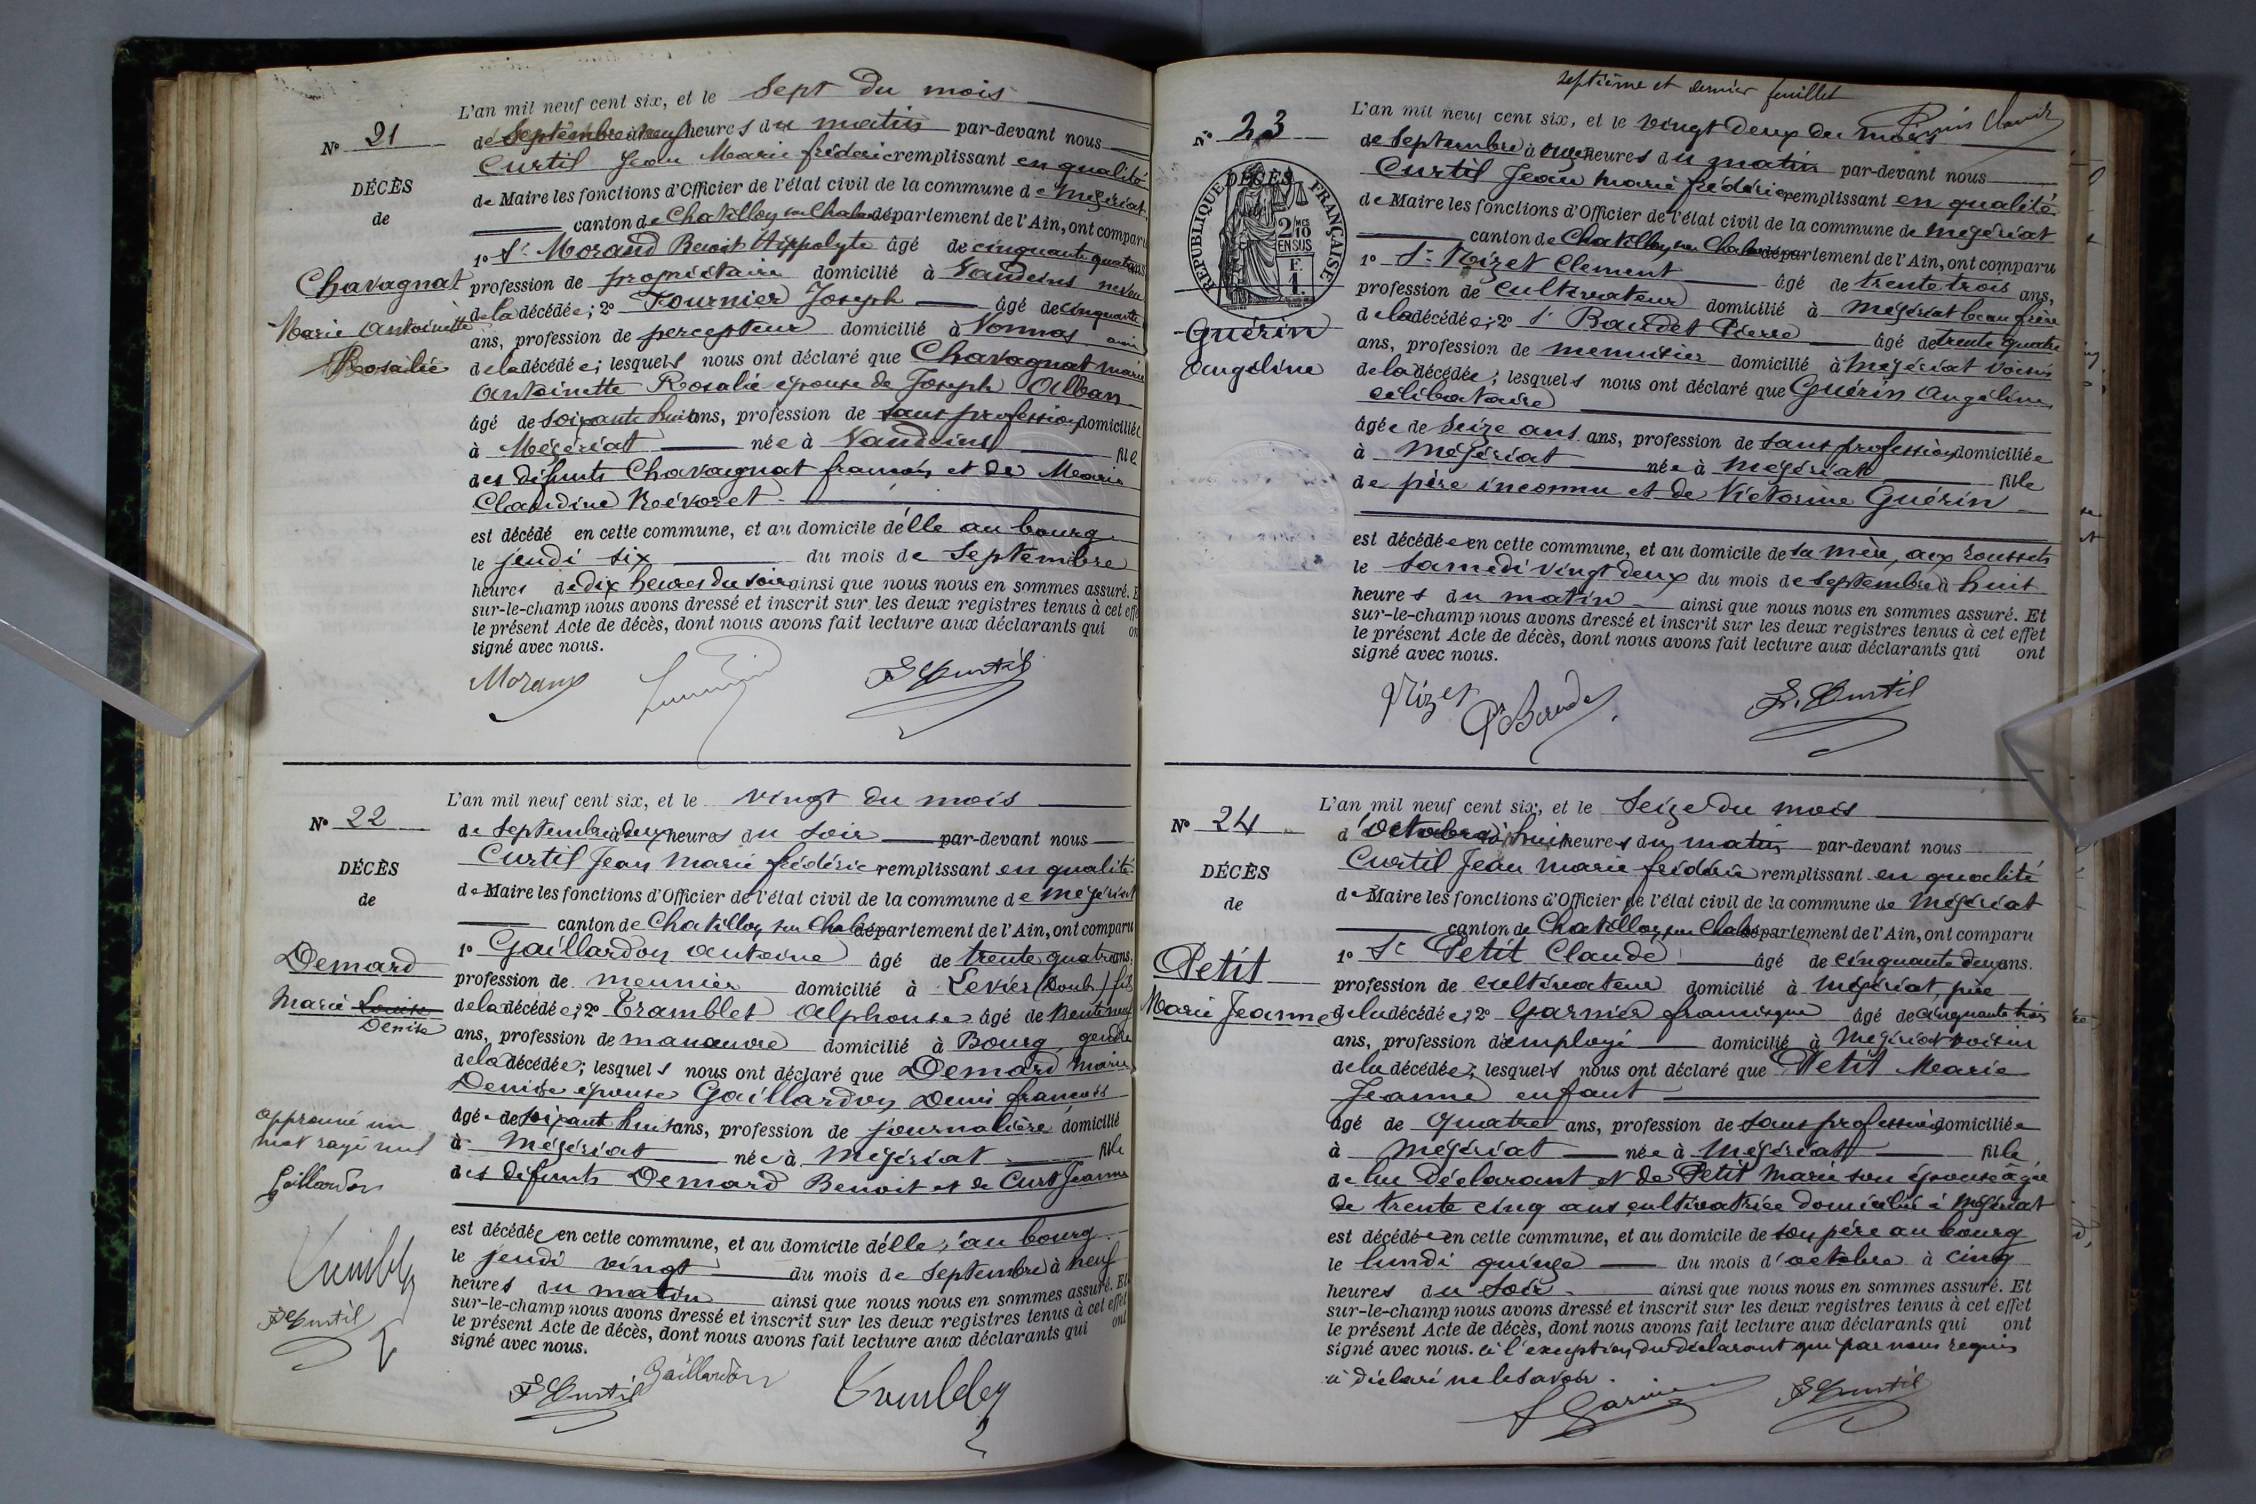 L'an mil neuf cent six, et le Sept du mois
N° 21
de Septembre à neuf heures du matin par-devant nous
Curtil Jean Marie frédéric remplissant en qualité
DÉCÈS
de Maire les fonctions d'Officier de l'état civil de la commune de Mézériat
de
canton de Chatillon sur Chal. département de l'Ain, ont comparu
1° Sr Morand Benoit Hippolyte âgé de cinquante quatre ans
Chavagnat
profession de propriétaire domicilié à Vandeins neveu
Marie Antoinette
de la décédée; 2° Fournier Joseph âgé de cinquante
ans, profession de percepteur domicilié à Vonnas ami
Rosalie
de la décédée; lesquels nous ont déclaré que Chavagnat marie
Antoinette Rosalie épouse de Joseph Alban
âgé de soixante huit ans, profession de sans profession domiciliée
à Mézériat née à Vandeins fille
des défunts Chavagnat françois et de Marie
Claudine Révoret
est décédé en cette commune, et au domicile d'elle au bourg
le jeudi six du mois de Septembre
heures de dix heures du soir ainsi que nous nous en sommes assuré. E
sur-le-champ nous avons dressé et inscrit sur les deux registres tenus à cet effe
le présent Acte de décès, dont nous avons fait lecture aux déclarants qui on
signé avec nous.
Morand F Curtil
L'an mil neuf cent six, et le vingt du mois
N° 22
de Septembre à deux heures du soir par-devant nous
Curtil Jean Marie frédéric remplissant en qualité
DÉCÈS
de Maire les fonctions d'Officier de l'état civil de la commune de Mézériat
de
canton de Chatillon sur Chal. département de l'Ain, ont comparu
1° Gaillardon Antoine âgé de trente quatre ans,
Demard
profession de meunier domicilié à Levier (Doubs) fils
Marie Louise
Denise
de la décédée; 2° Tramblet Alphonse âgé de trente neuf
ans, profession de manœuvre domicilié à Bourg, gendre
de la décédée; lesquels nous ont déclaré que Demard Marie
Denise épouse Gaillardon Denis françois
approuvé un
mot rayé nul
âgée de soixante huit ans, profession de journalière domicilié
à Mézériat née à Mézériat fille
Gaillardon
des défunts Demard Benoit et de Curt Jeanne
est décédée en cette commune, et au domicile d'elle, au bourg
Tramblet
le jeudi vingt du mois de Septembre à neuf
heures du matin ainsi que nous nous en sommes assuré. Et
F Curtil
sur-le-champ nous avons dressé et inscrit sur les deux registres tenus à cet effet
le présent Acte de décès, dont nous avons fait lecture aux déclarants qui ont
signé avec nous.
F Curtil Gaillardon Tramblet
septième et dernier feuillet
L'an mil neuf cent six, et le vingt deux du mois
N° 23
de Septembre à onze heures du matin par-devant nous
Curtil Jean Marie frédéric remplissant en qualité
DÉCÈS
RÉPUBLIQUE FRANÇAISE
2 MES
10
EN SUS
F.
1
de Maire les fonctions d'Officier de l'état civil de la commune de Mézériat
canton de Chatillon sur Chal. département de l'Ain, ont comparu
1° Sr Nizet Clement âgé de trente trois ans,
profession de cultivateur domicilié à Mézériat beau frère
Guérin
de la décédée; 2° Sr Baudet Pierre âgé de trente quatre
ans, profession de menuisier domicilié à Mézériat voisin
Angeline
de la décédée; lesquels nous ont déclaré que Guérin Angeline
célibataire
âgée de Seize ans ans, profession de sans profession domiciliée
à Mézériat née à Mézériat fille
de père inconnu et de Victorine Guérin
est décédée en cette commune, et au domicile de sa mère, aux roussets
le samedi vingt deux du mois de Septembre à huit
heures du matin ainsi que nous nous en sommes assuré. Et
sur-le-champ nous avons dressé et inscrit sur les deux registres tenus à cet effet
le présent Acte de décès, dont nous avons fait lecture aux déclarants qui ont
signé avec nous.
Nizet Pre Baudet F. Curtil
L'an mil neuf cent six, et le Seize du mois
N° 24
d'Octobre à huit heures du matin par-devant nous
Curtil Jean Marie frédéric remplissant en qualité
DÉCÈS
de Maire les fonctions d'Officier de l'état civil de la commune de Mézériat
de
canton de Chatillon sur Chal. département de l'Ain, ont comparu
1° Sr Petit Claude âgé de cinquante deux ans.
Petit
profession de cultivateur domicilié à Mézériat, père
Marie Jeanne
de la décédée; 2° Garnier françisque âgé de cinquante trois
ans, profession d'employé domicilié à Mézériat voisin
de la décédée; lesquels nous ont déclaré que Petit Marie
Jeanne enfant
âgé de quatre ans, profession de sans profession domiciliée
à Mézériat née à Mézériat fille
de lui Déclarant et de Petit Marie son épouse âgée
de trente cinq ans cultivatrice domiciliée à Mézériat
est décédée en cette commune, et au domicile de son père au bourg
le lundi quinze du mois d'octobre à cinq
heures du soir ainsi que nous nous en sommes assuré. Et
sur-le-champ nous avons dressé et inscrit sur les deux registres tenus à cet effet
le présent Acte de décès, dont nous avons fait lecture aux déclarants qui ont
signé avec nous. à l'exception du déclarant qui par nous requis
a déclaré ne le savoir.
F Garnier F Curtil